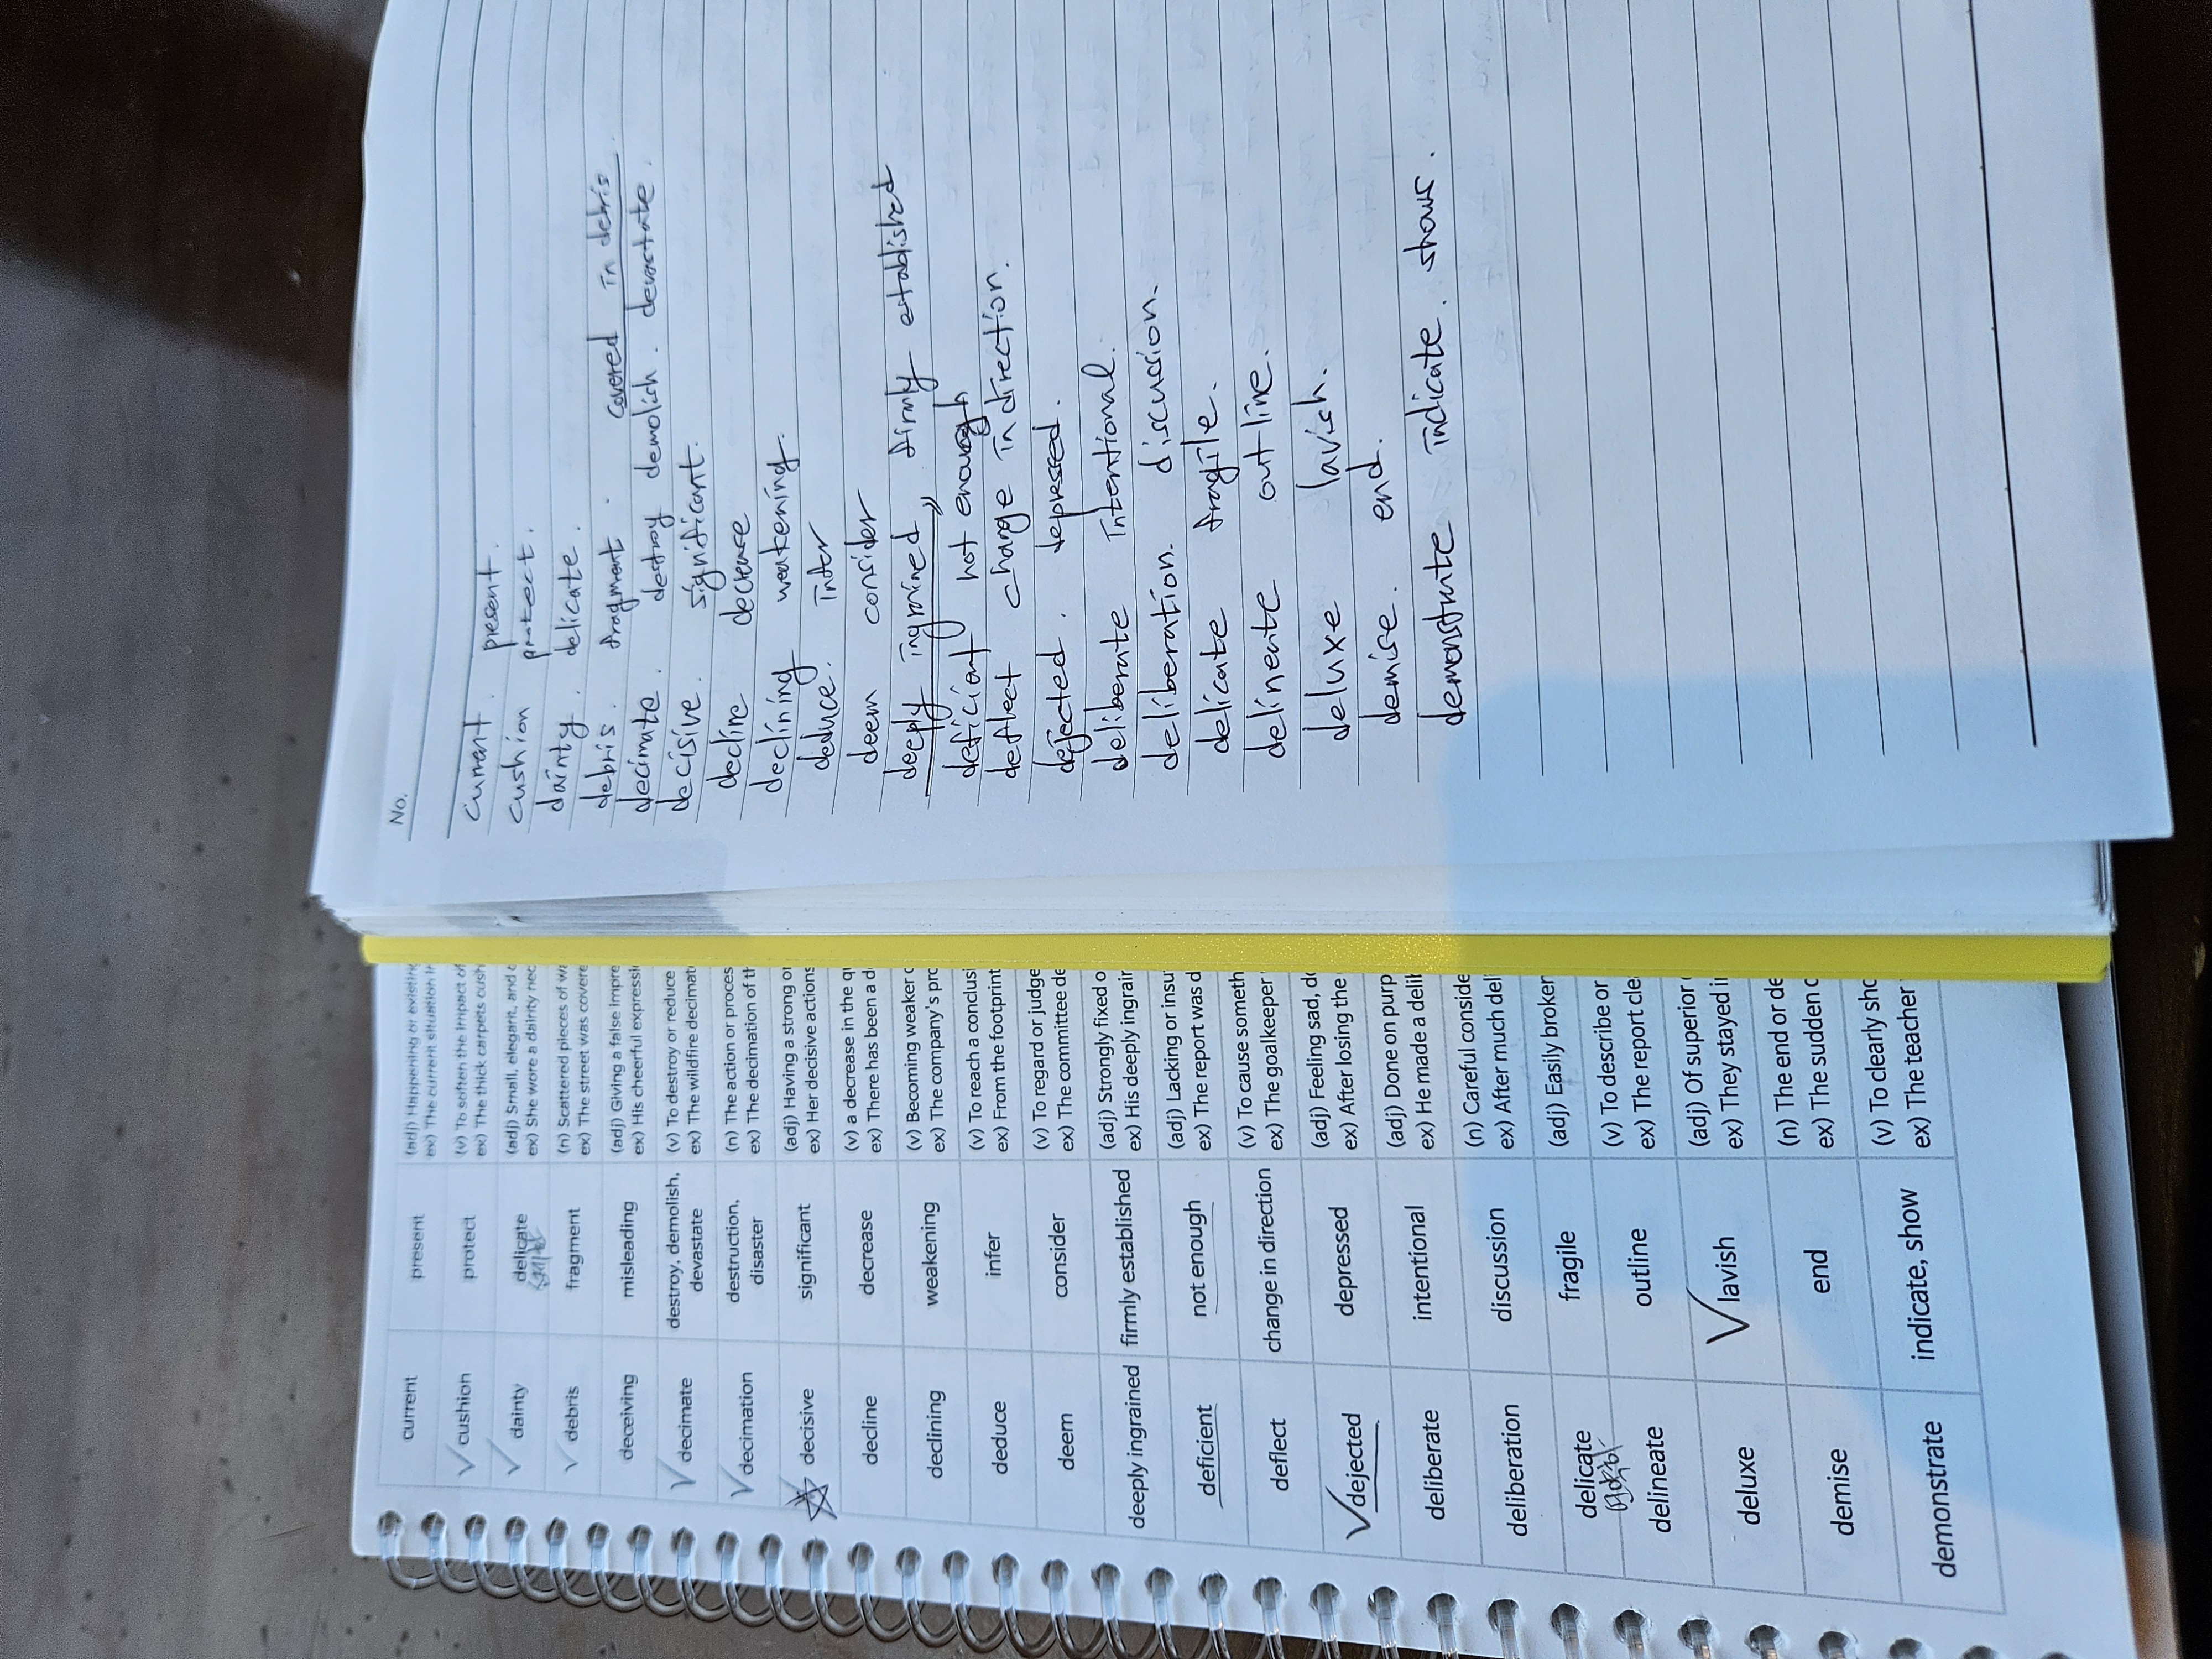 current present (adj) Happening or existing
ex) The current situation
cushion protect (v) To soften the impact of
ex) The thick carpets cush
dainty delicate (adj) Small, elegant, and
ex) She wore a dainty nec
debris fragment (n) Scattered pieces of
ex) The street was covere
deceiving misleading (adj) Giving a false impre
ex) His cheerful expressi
decimate destroy, demolish, devastate (v) To destroy or reduce
ex) The wildfire decimat
decimation destruction, disaster (n) The action or proces
ex) The decimation of th
decisive significant (adj) Having a strong or
ex) Her decisive actions
decline decrease (v) a decrease in the q
ex) There has been a d
declining weakening (v) Becoming weaker
ex) The company's pro
deduce infer (v) To reach a conclusi
ex) From the footprint
deem consider (v) To regard or judge
ex) The committee de
deeply ingrained firmly established (adj) Strongly fixed o
ex) His deeply ingrain
deficient not enough (adj) Lacking or insu
ex) The report was d
deflect change in direction (v) To cause someth
ex) The goalkeeper
dejected depressed (adj) Feeling sad, d
ex) After losing the
deliberate intentional (adj) Done on purp
ex) He made a delib
deliberation discussion (n) Careful conside
ex) After much del
delicate fragile (adj) Easily broken
delineate outline (v) To describe or
ex) The report cle
deluxe lavish (adj) Of superior
ex) They stayed i
demise end (n) The end or de
ex) The sudden
demonstrate indicate, show (v) To clearly sho
ex) The teacher
No.
current. present.
cushion protect.
dainty. delicate.
debris. fragment. covered in debris.
decimate. destroy demolish. devastate.
decisive. significant.
decline decrease
declining weakening.
deduce. infer
deem consider
deeply ingrained, firmly established
deficient not enough
deflect change in direction.
dejected. depressed.
deliberate intentional.
deliberation. discussion.
delicate fragile.
delineate outline.
deluxe lavish.
demise. end.
demonstrate indicate. show.